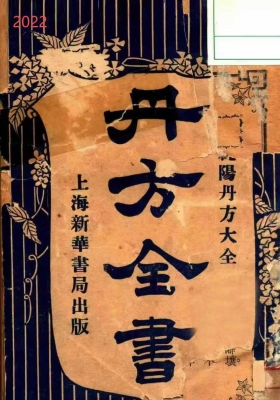 2022
丹方全書
陽丹方大全
上海新華書局出版